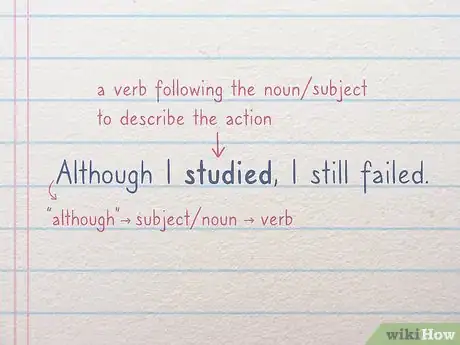 a verb following the noun/subject
to describe the action
Although I studied, I still failed.
"although"→ subject/noun → verb
wikiHow